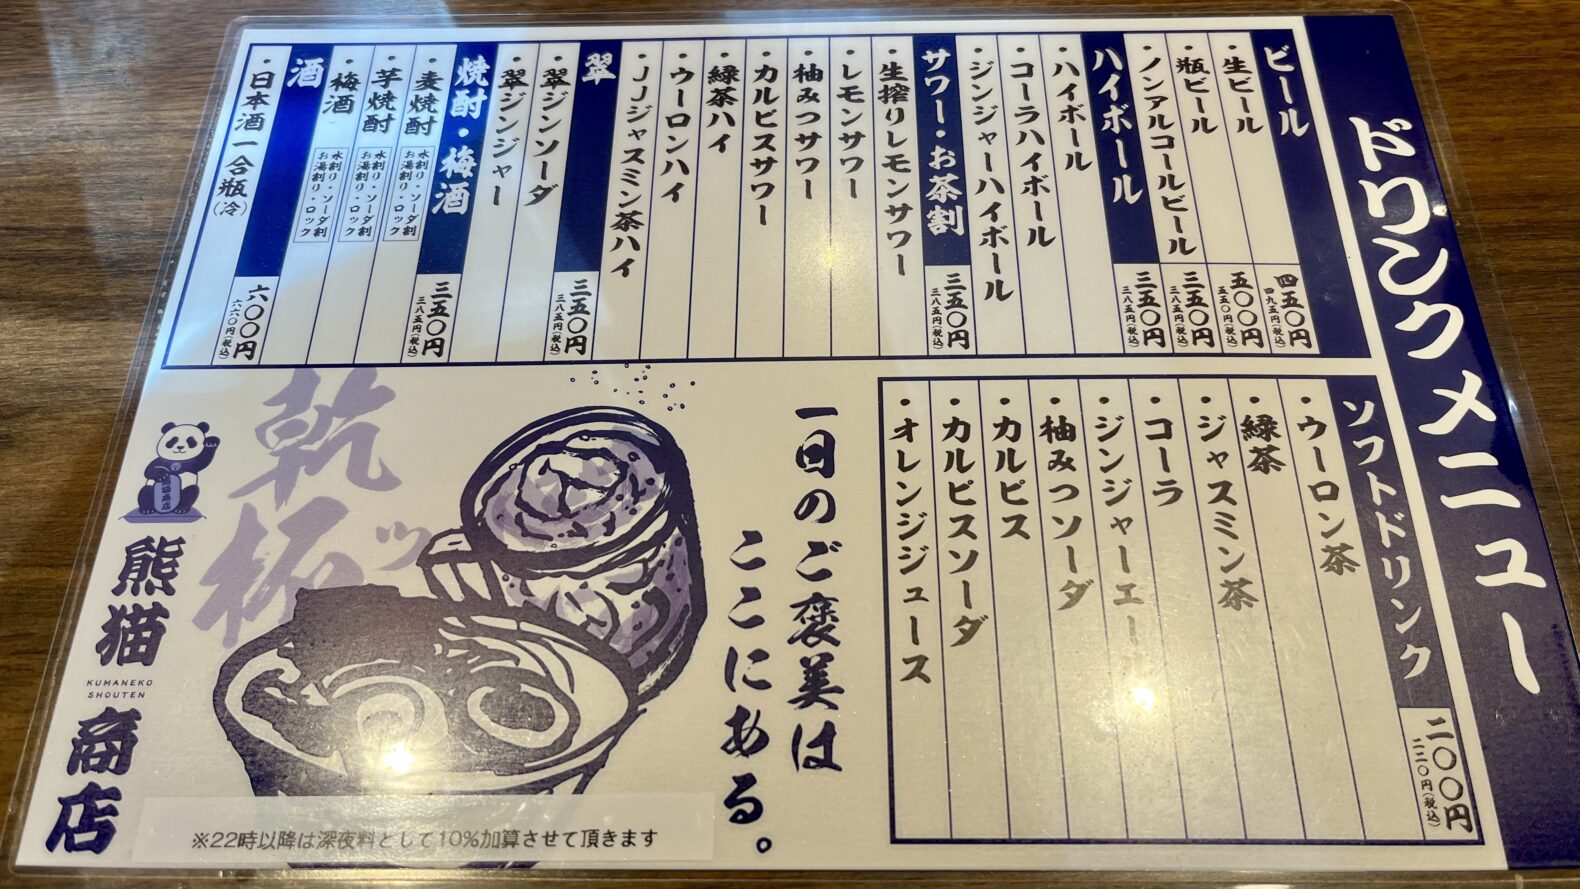 ドリンクメニュー
ビール
・生ビール
四五〇円
四九五円(税込)
・瓶ビール
五〇〇円
五五〇円(税込)
・ノンアルコールビール
三五〇円
三八五円(税込)
ハイボール
三五〇円
三八五円(税込)
・ハイボール
・コーラハイボール
・ジンジャーハイボール
サワー・お茶割
三五〇円
三八五円(税込)
・生搾りレモンサワー
・レモンサワー
・柚みつサワー
・カルピスサワー
・緑茶ハイ
・ウーロンハイ
・JJジャスミン茶ハイ
翠
三五〇円
三八五円(税込)
・翠ジンソーダ
・翠ジンジャー
焼酎・梅酒
三五〇円
三八五円(税込)
・麦焼酎
水割り・ソーダ割
お湯割り・ロック
・芋焼酎
水割り・ソーダ割
お湯割り・ロック
・梅酒
水割り・ソーダ割
お湯割り・ロック
酒
・日本酒一合瓶(冷)
六〇〇円
六六〇円(税込)
ソフトドリンク
二〇〇円
二二〇円(税込)
・ウーロン茶
・緑茶
・ジャスミン茶
・コーラ
・ジンジャーエール
・柚みつソーダ
・カルピス
・カルピスソーダ
・オレンジジュース
一日のご褒美は
ここにある。
乾杯ッ
熊猫
KUMANEKO
SHOUTEN
商店
※22時以降は深夜料として10%加算させて頂きます